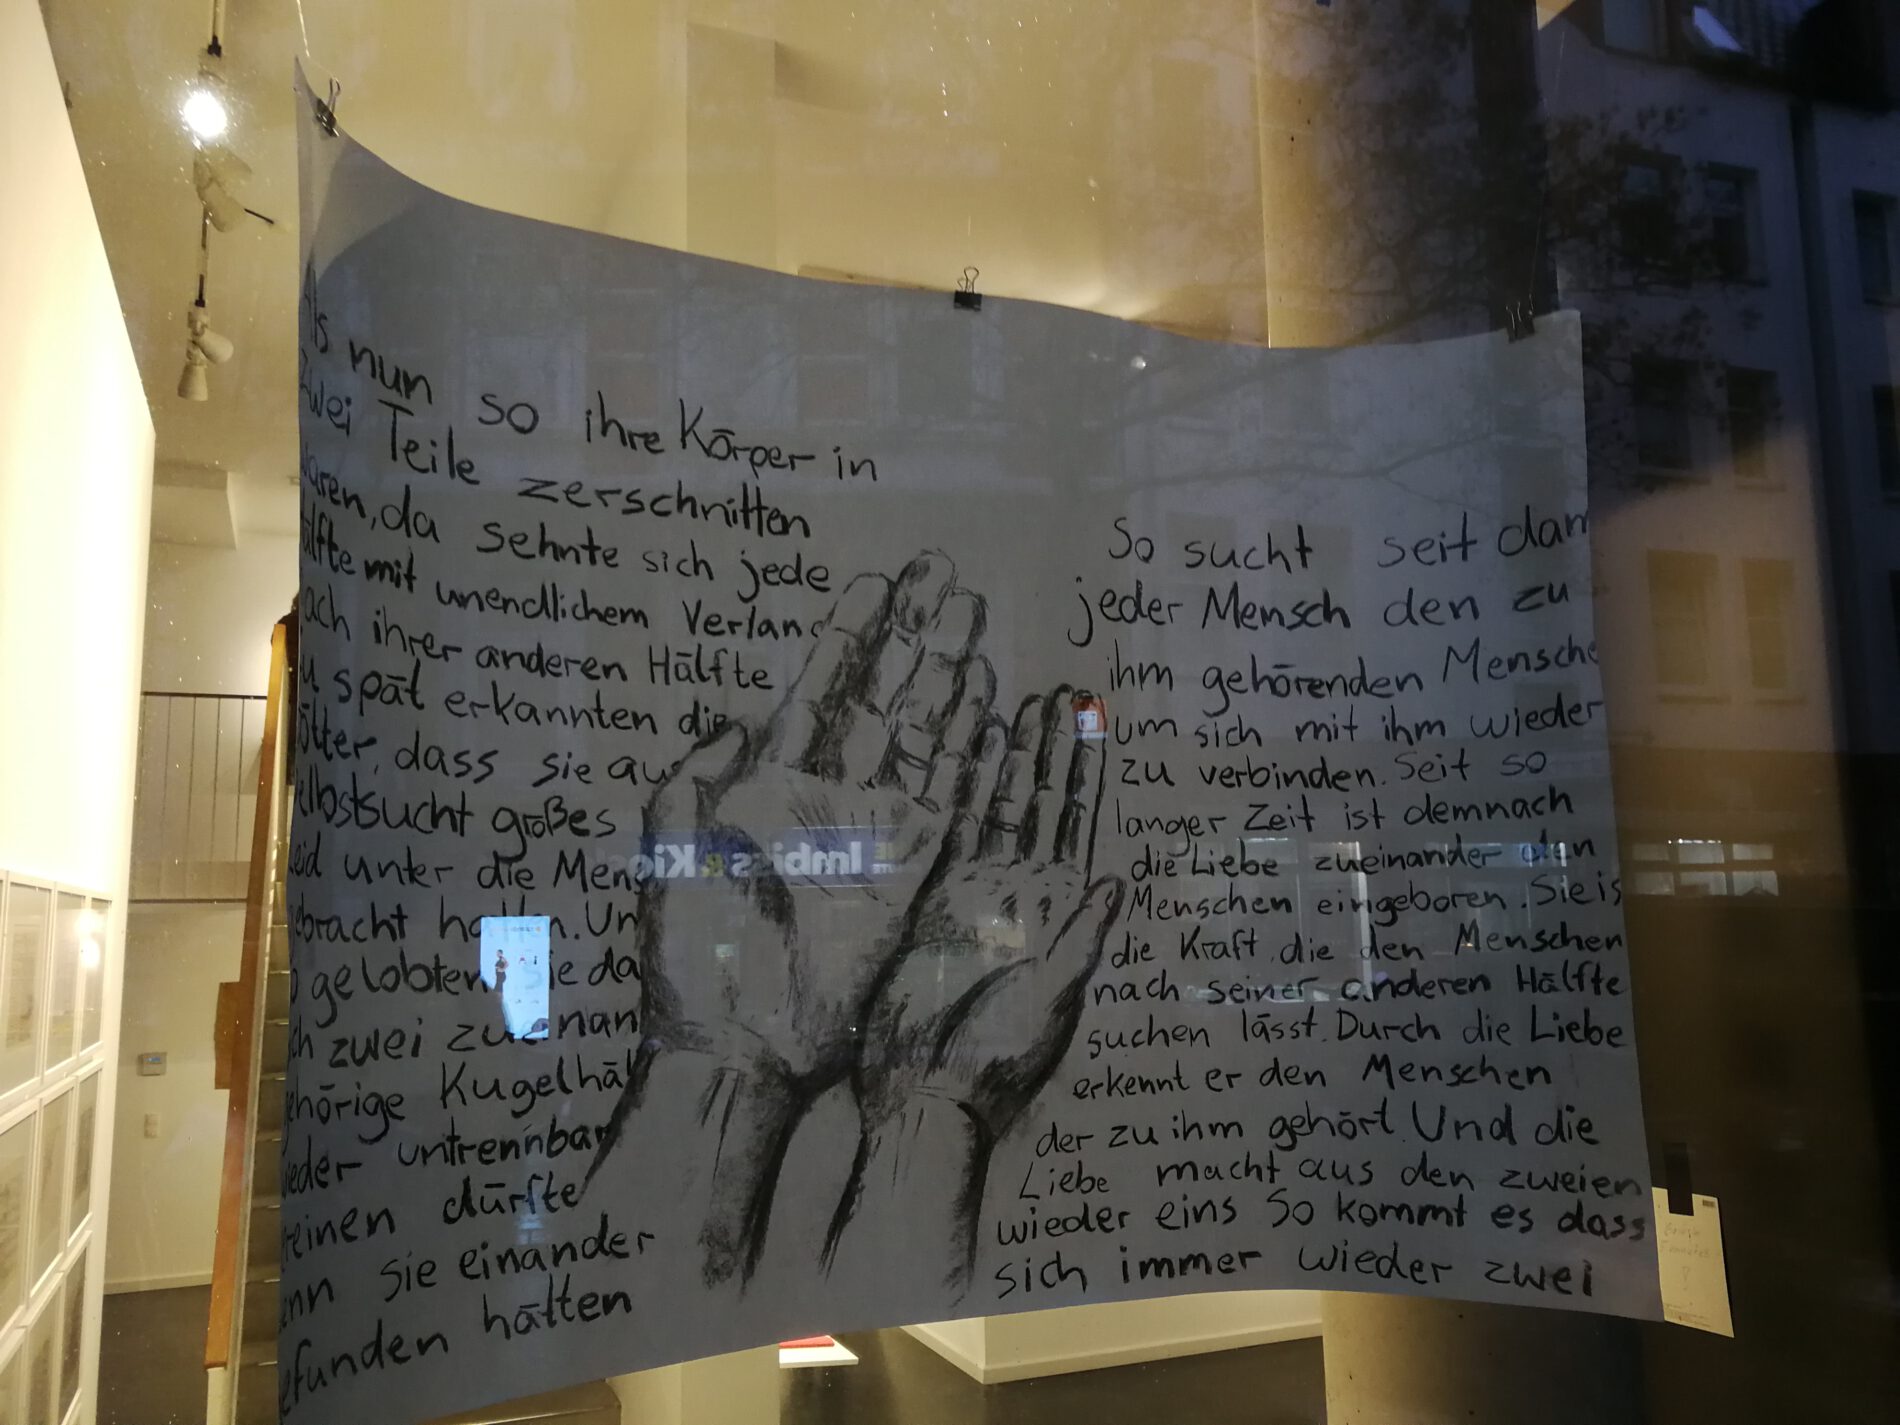 Als nun so ihre Körper in
zwei Teile zerschnitten
waren, da sehnte sich jede
älfte mit unendlichem Verlang
ach ihrer anderen Hälfte
zu spät erkannten die
ötter, dass sie aus
elbstsucht großes
Leid unter die Mens
ebracht hatten. Un
o gelobten sie da
ch zwei zueinan
ehörige Kugelhäl
ieder untrennbar
reinen dürfte
enn sie einander
efunden hätten
So sucht seit dam
jeder Mensch den zu
ihm gehörenden Mensche
um sich mit ihm wieder
zu verbinden. Seit so
langer Zeit ist demnach
die Liebe zueinander den
Menschen eingeboren. Sie is
die Kraft, die den Menschen
nach seiner anderen Hälfte
suchen lässt. Durch die Liebe
erkennt er den Menschen
der zu ihm gehört. Und die
Liebe macht aus den zweien
wieder eins So kommt es dass
sich immer wieder zwei
Imbiss & Kiosk